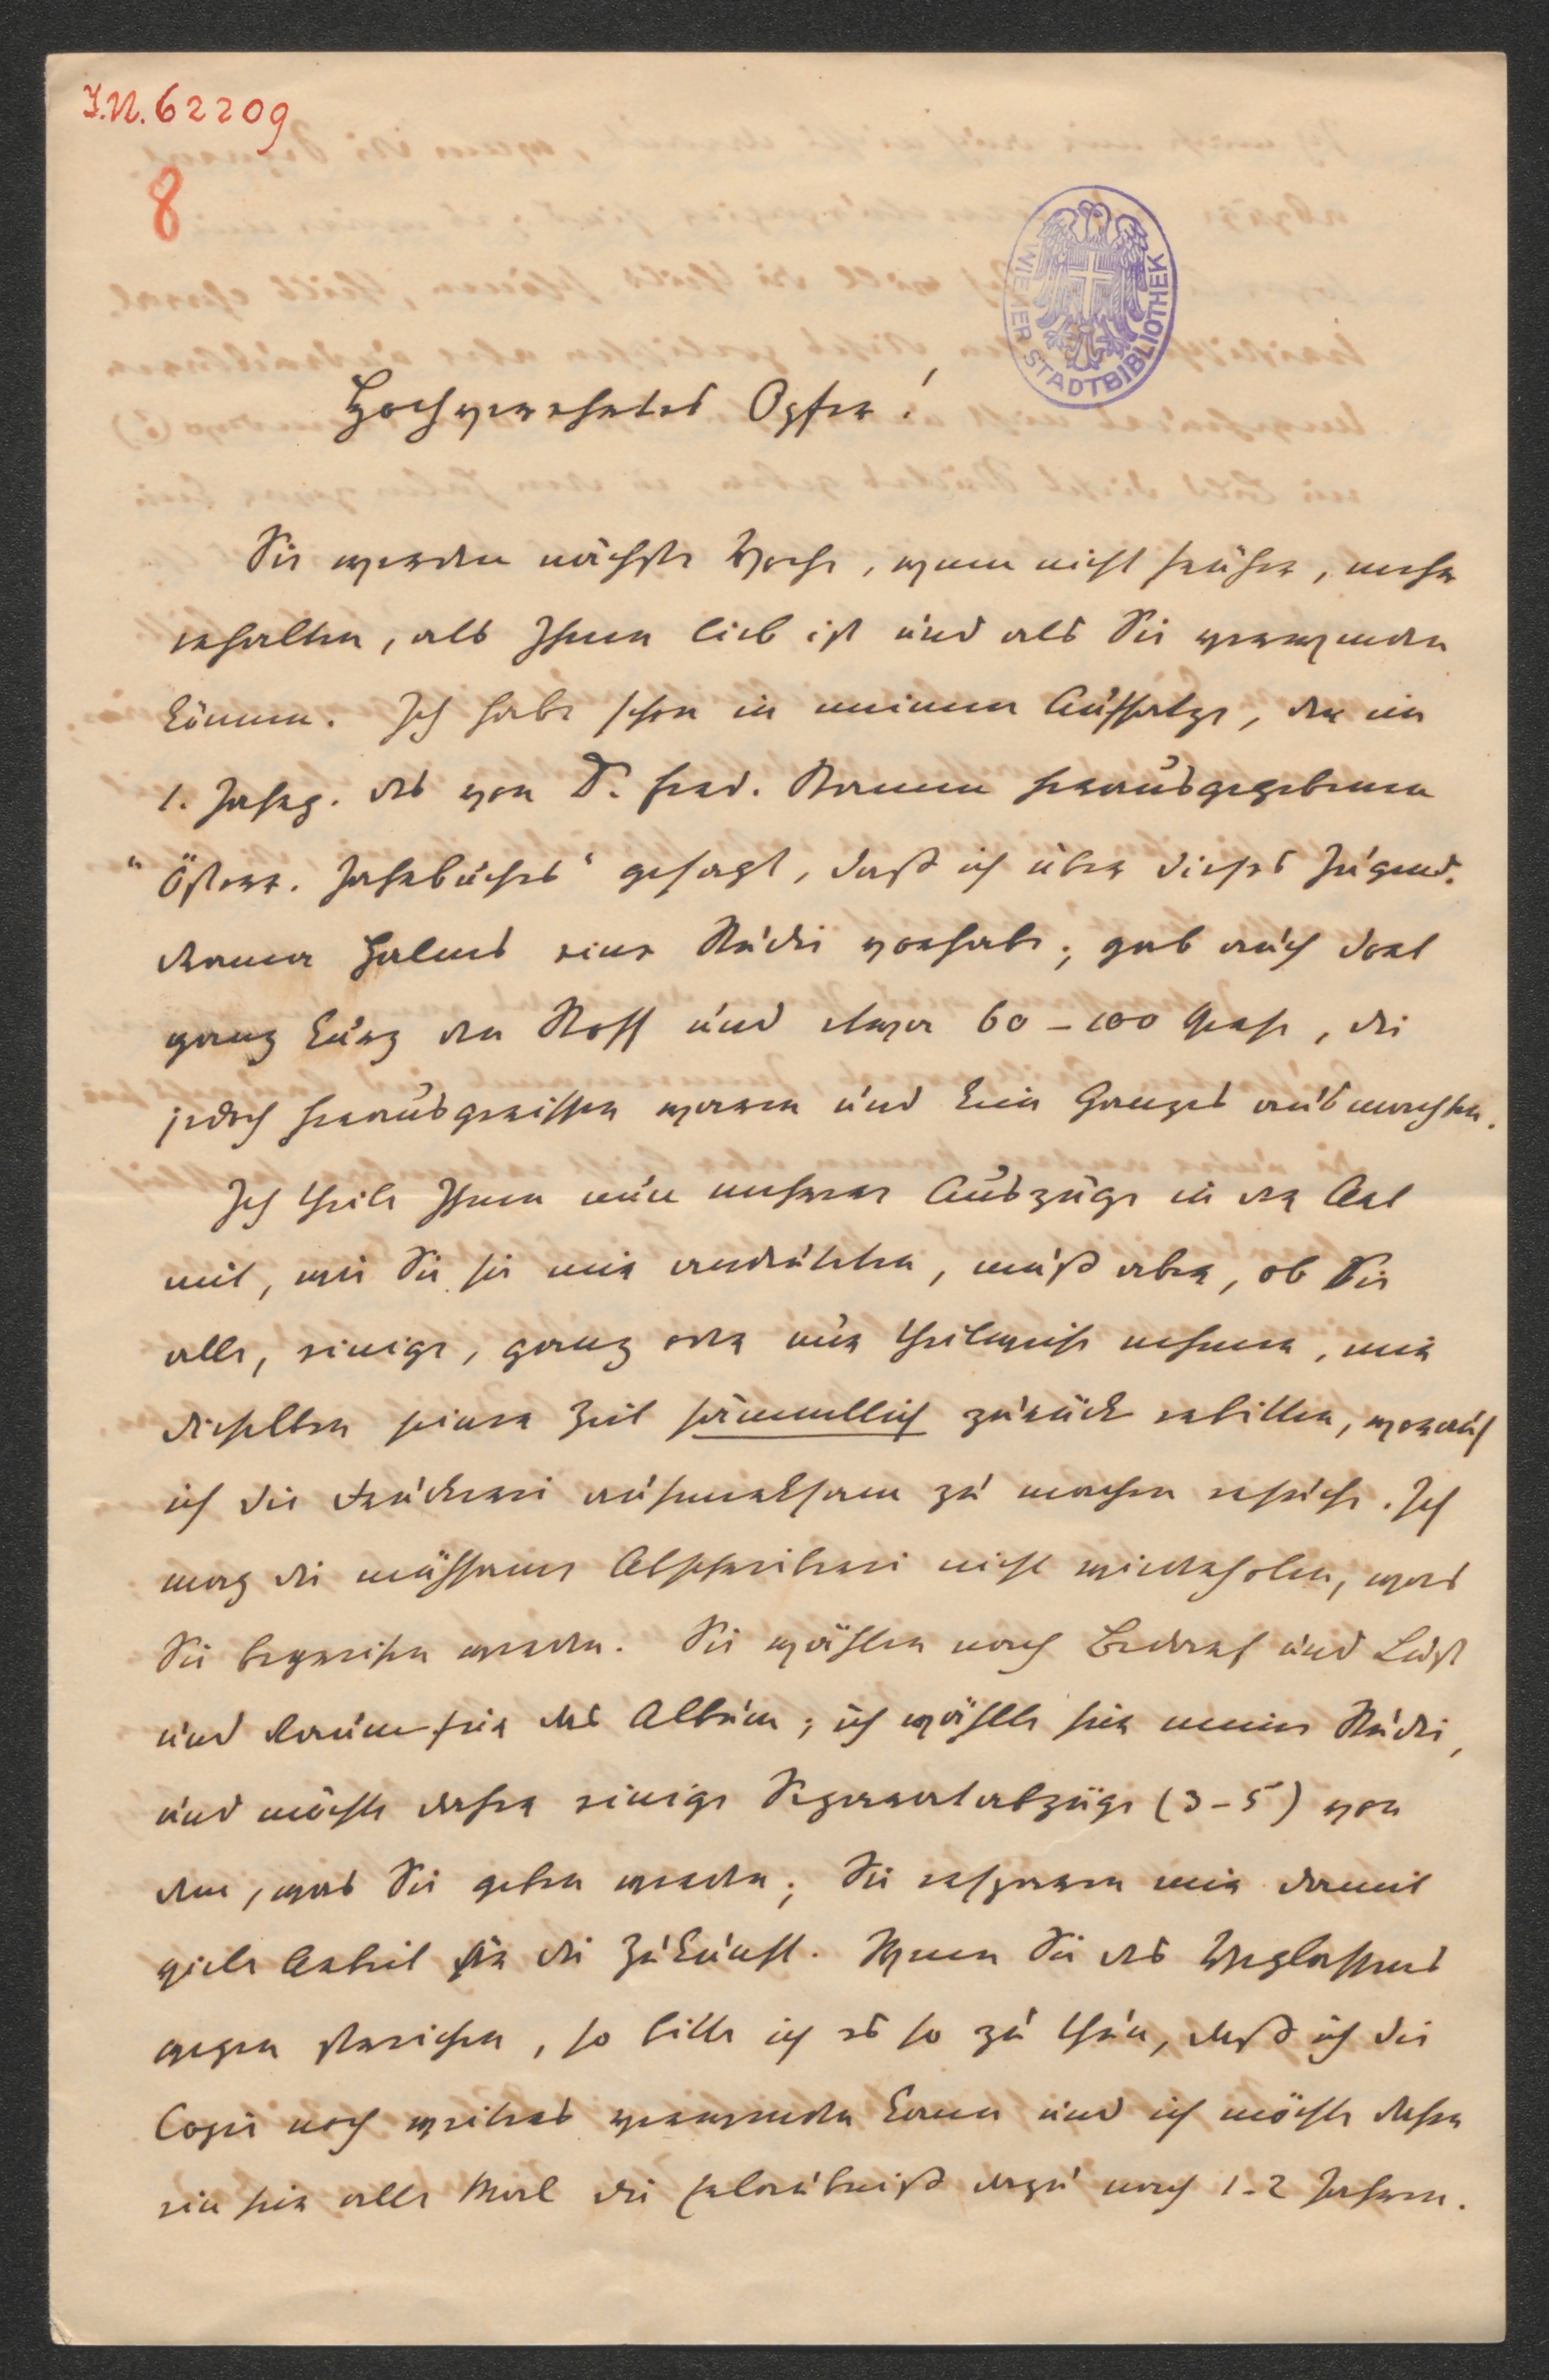 I.N. 62209
8
WIENER STADTBIBLIOTHEK
Hochverehrtes Opfer!
Sie werden nächste Woche, wenn nicht früher, mehr
erhalten, als Ihnen lieb ist und als Sie verwenden
können. Ich habe schon in meinem Aufsatze, der im
1. Jahrg. des von D. herausgegebenen
"Österr. Jahrbuches" gesagt, daß ich über dieses Jugend-
drama Halms eine Studie vorhabe; gab auch dort
ganz kurz den Stoff und etwa 60–100 Verse, die
jedoch herausgerissen waren und kein Ganzes ausmachten.
Ich theile Ihnen nun mehrere Auszüge in der Art
mit, wie Sie sie mir andeuteten, muß aber, ob Sie
alle, einige, ganz oder nur theilweise nehmen, mir
dieselben seiner Zeit sämmtlich zurück erbitten, worauf
ich die Druckerei aufmerksam zu machen ersuche. Ich
mag die mühsame Abschreiberei nicht wiederholen, was
Sie begreifen werden. Sie wählen nach Bedarf und Lust
und Raum für das Album; ich wählte für meine Studie,
und möchte daher einige Separatabzüge (3–5) von
dem, was Sie geben werden; Sie ersparen mir damit
viele Arbeit für die Zukunft. Wenn Sie des Weglassens
wegen streichen, so bitte ich es so zu thun, daß ich die
Copie noch weiters verwenden kann und ich möchte daher
ein für alle Mal die Erlaubniß dazu nach 1-2 Jahren.